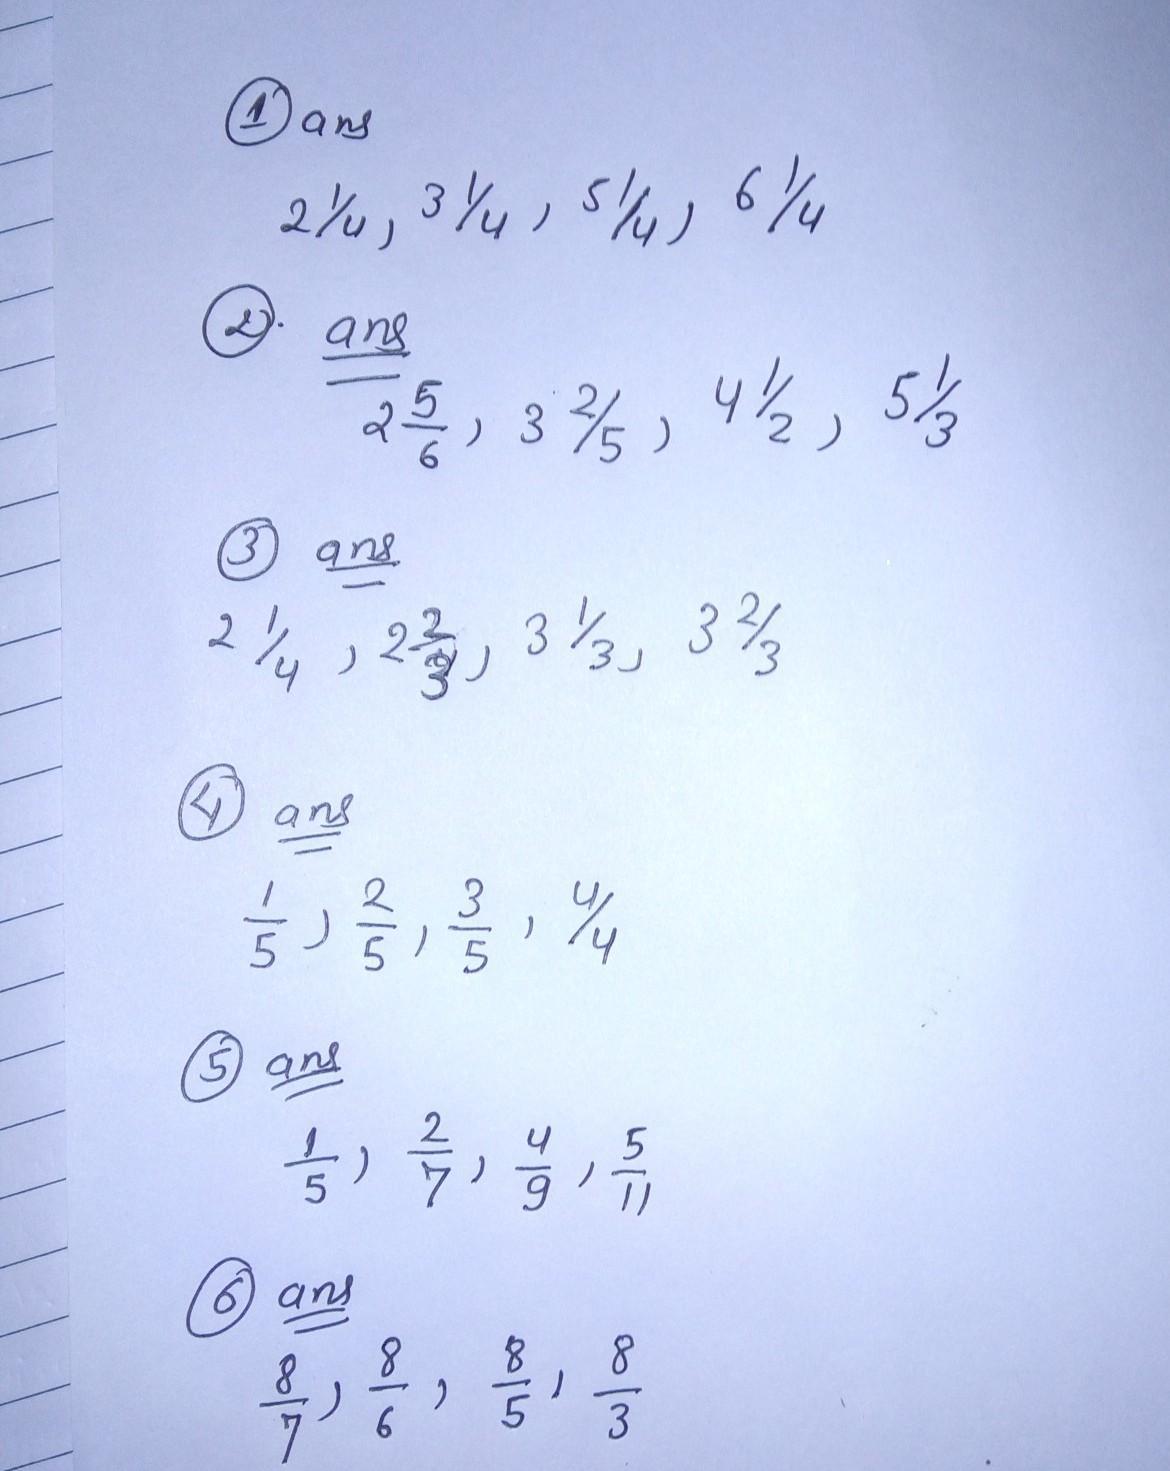 ① ans
2 1/4, 3 1/4, 5 1/4, 6 1/4
②. ans
2 5/6, 3 2/5, 4 1/2, 5 1/3
③ ans
2 1/4, 2 2/3, 3 1/3, 3 2/3
④ ans
1/5, 2/5, 3/5, 4/4
⑤ ans
1/5, 2/7, 4/9, 5/11
⑥ ans
8/7, 8/6, 8/5, 8/3